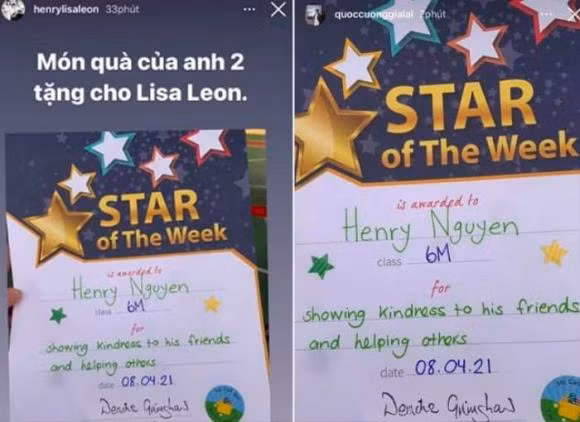 henrylisaleon 33phút
Món quà của anh 2
tặng cho Lisa Leon.
STAR
of The Week
is awarded to
Henry Nguyen
class 6M
for
showing kindness to his friends
and helping others
date 08.04.21
quoccuonggialai 2phút
STAR
of The Week
is awarded to
Henry Nguyen
class 6M
for
showing kindness to his friends
and helping others
date 08.04.21